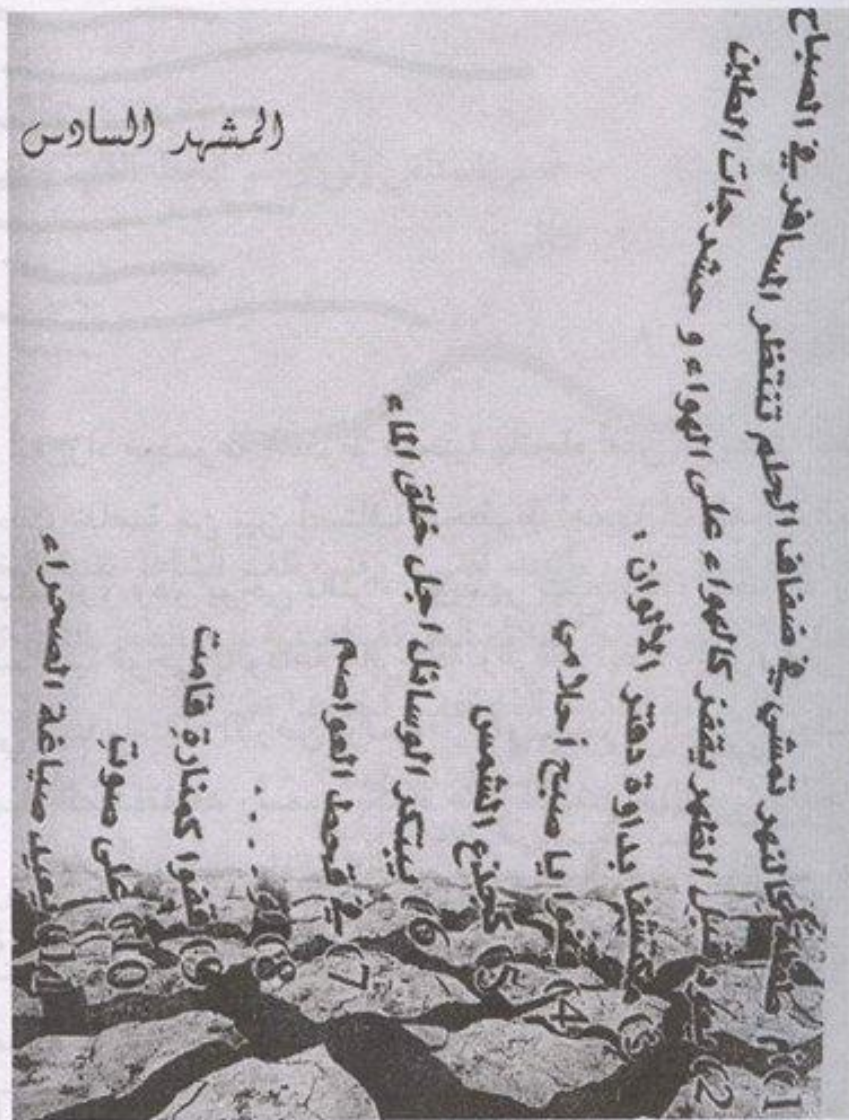 المشهد السادس
1) كالنهر تمشي في ضفاف الحلم تنتظر المسافر في الصباح
2) قبل الظهر يقفز كالهواء على الهواء و حشرجات الطين
3) بداوة دفتر الألوان .
4) قفوا يا صبح أحلامي
5) كجذع الشمس
6) يبتكر الوسائل اجل خلق الماء
7) في قحط العواصم
8) و....
9) قفوا كمنارةٍ قامت
10) على صوتِ
11) يعيد صياغة الصحراء